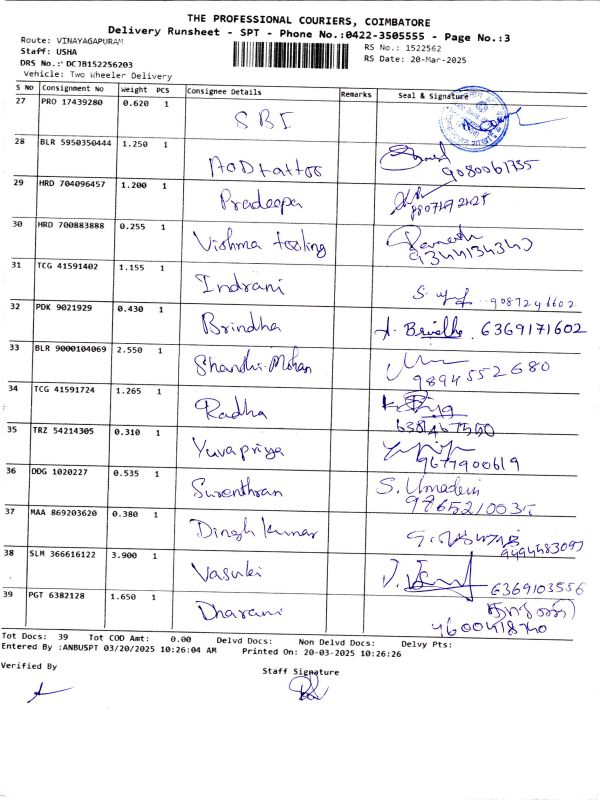 THE PROFESSIONAL COURIERS, COIMBATORE
Delivery Runsheet - SPT - Phone No.:0422-3505555 - Page No.:3
Route: VINAYAGAPURAM
RS No.: 1522562
Staff: USHA
RS Date: 20-Mar-2025
DRS No.: DCJB152256203
Vehicle: Two Wheeler Delivery
S No Consignment No Weight PCS Consignee Details Remarks Seal & Signature
27 PRO 17439280 0.620 1 SBI
28 BLR 5950350444 1.250 1 AODtattoo 9080061735
29 HRD 704096457 1.200 1 Pradeepa
30 HRD 700883888 0.255 1 Vishma tooling Ramesh 9344134343
31 TCG 41591402 1.155 1 Indrani S.
32 PDK 9021929 0.430 1 Brindha A. Brindha. 6369171602
33 BLR 9000104069 2.550 1 Shandhi.Mohan 9894552680
34 TCG 41591724 1.265 1 Radha
35 TRZ 54214305 0.310 1 Yuvapriya 9677900619
36 DDG 1020227 0.535 1 Surenthran S. Umadevi
37 MAA 869203620 0.380 1 Dinesh kumar
38 SLM 366616122 3.900 1 Vasuki 6369103556
39 PGT 6382128 1.650 1 Dharani 9600418740
Tot Docs: 39 Tot COD Amt: 0.00 Delvd Docs: Non Delvd Docs: Delvy Pts:
Entered By :ANBUSPT 03/20/2025 10:26:04 AM Printed On: 20-03-2025 10:26:26
Verified By
Staff Signature